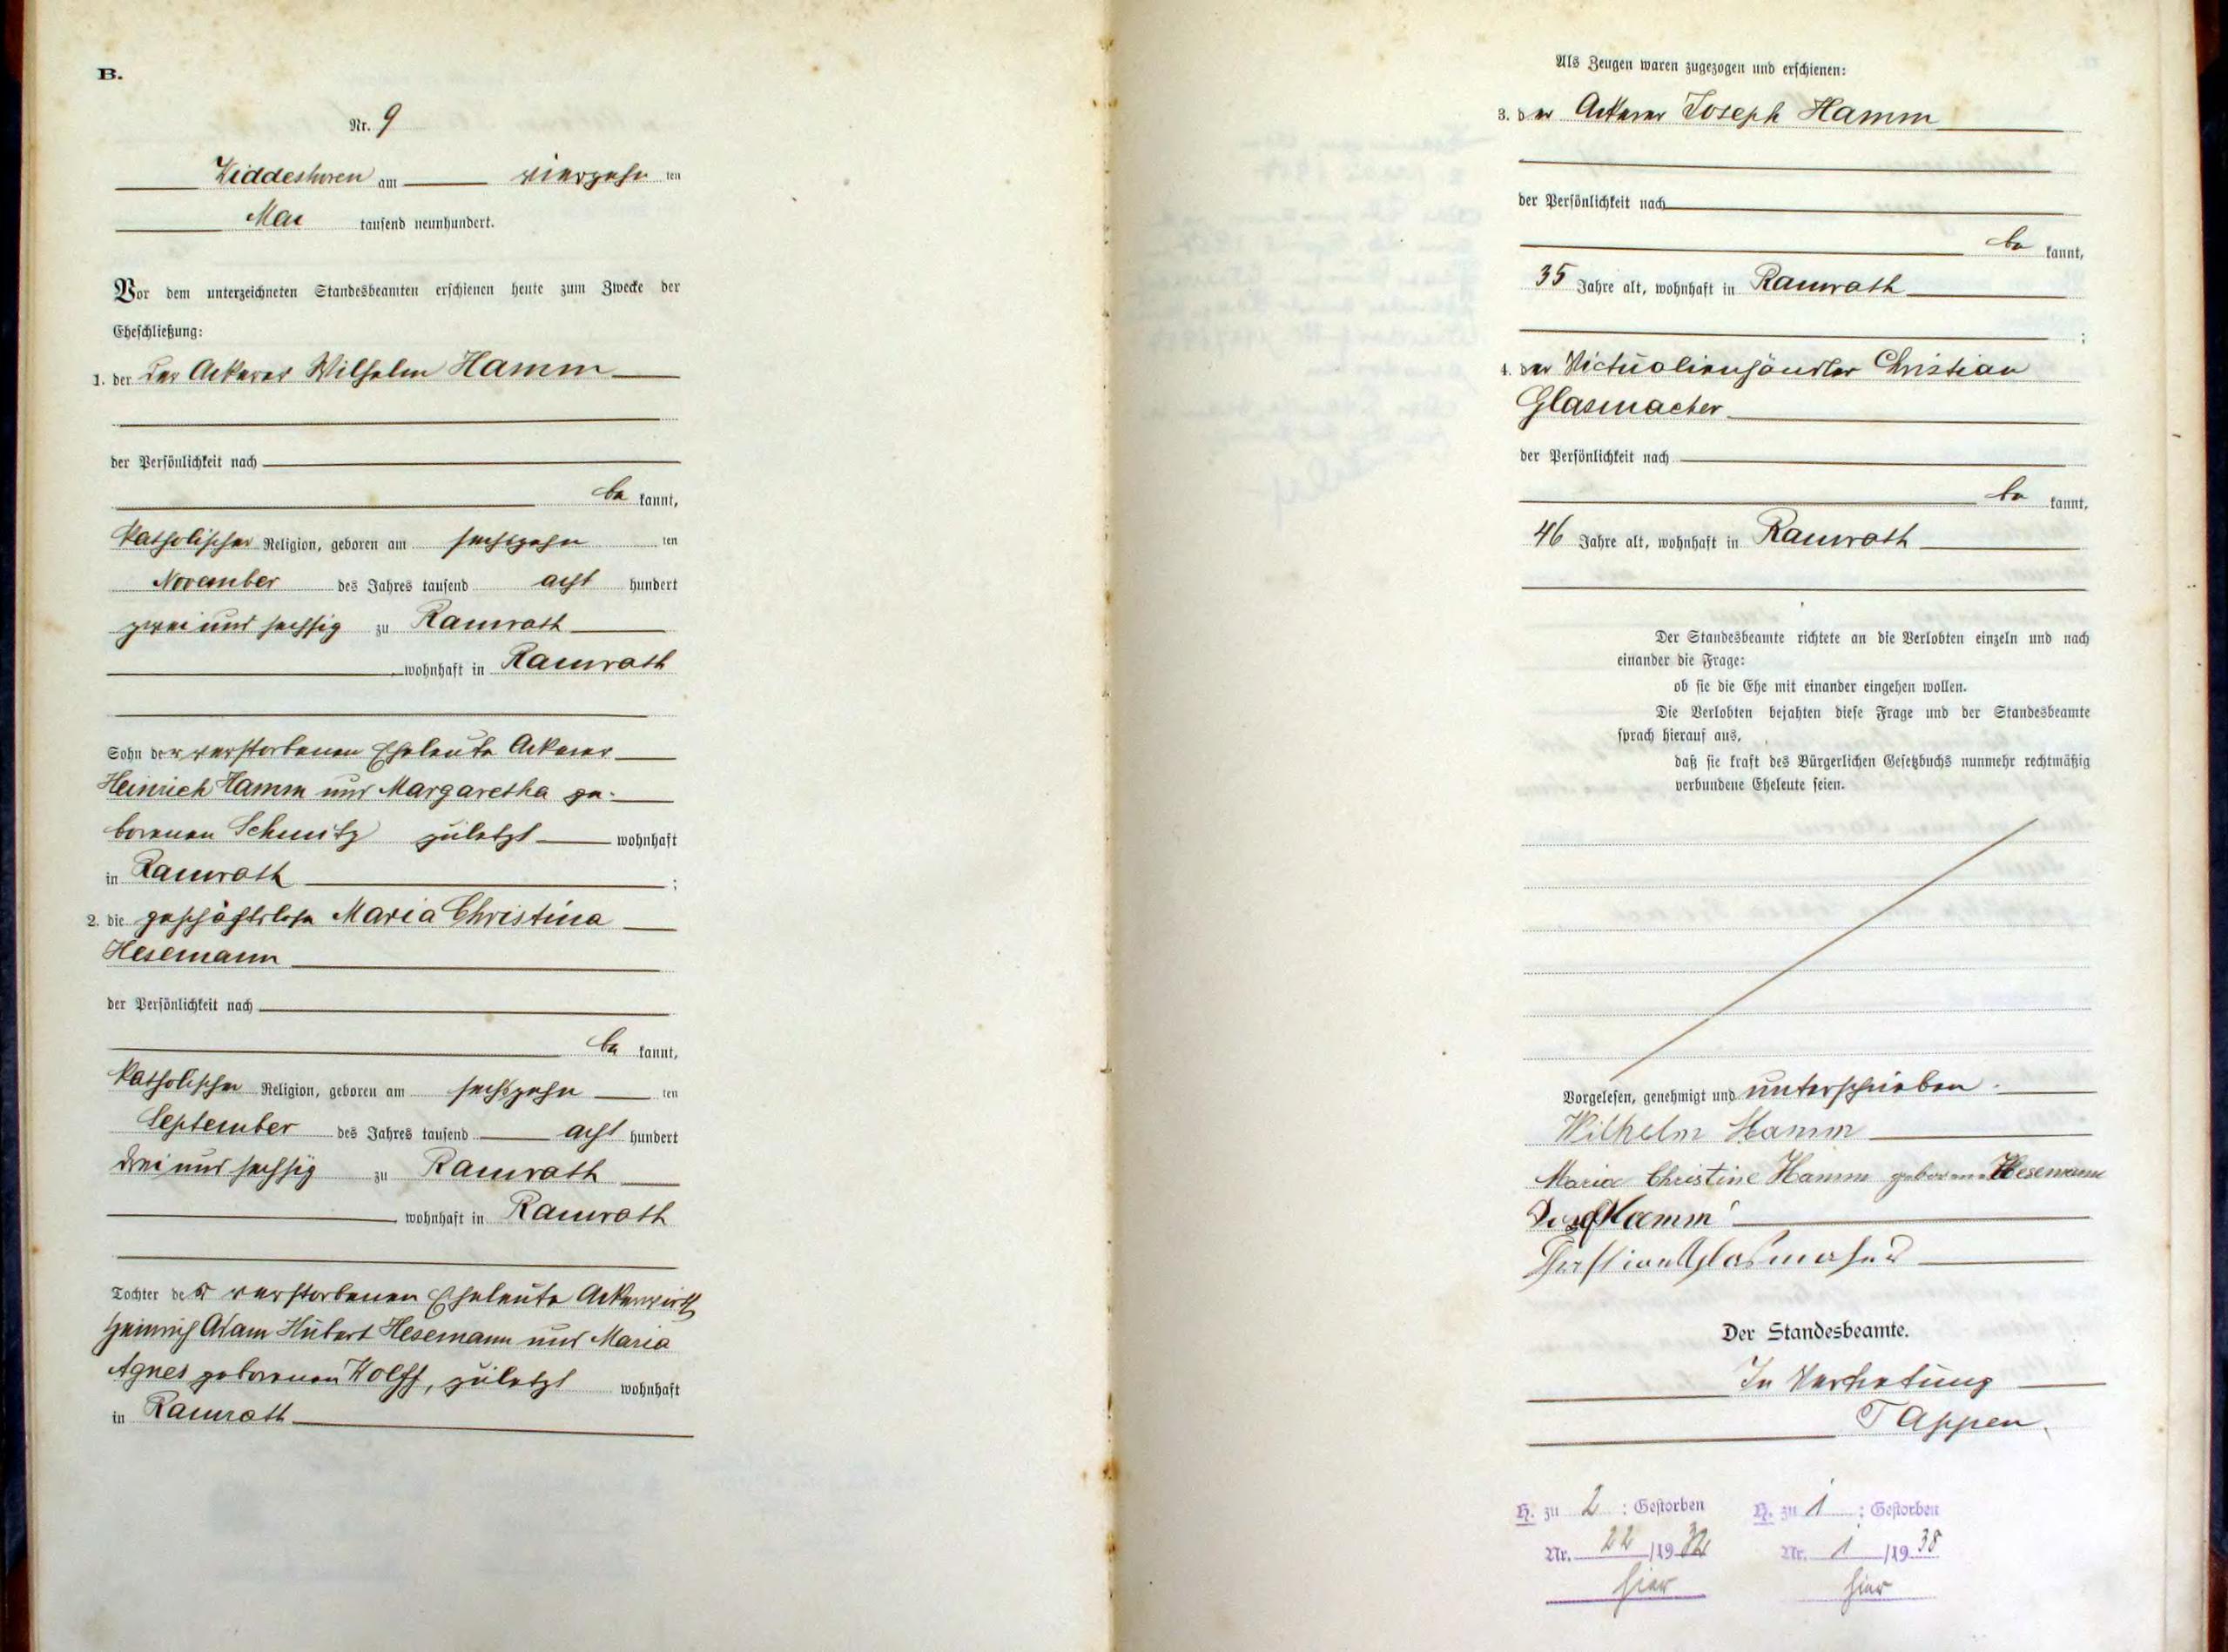 B.
Nr. 9
Widdeshoven am vierzehn ten
Mai tausend neunhundert.
Vor dem unterzeichneten Standesbeamten erschienen heute zum Zwecke der
Eheschließung:
1. der der Ackerer Wilhelm Hamm
der Persönlichkeit nach
be kannt,
katholischer Religion, geboren am sechszehn ten
November des Jahres tausend acht hundert
zwei und sechsig zu Ramrath
wohnhaft in Ramrath
Sohn der verstorbenen Eheleute Ackerer
Heinrich Hamm und Margaretha ge-
borenen Schmitz zuletzt wohnhaft
in Ramrath ;
2. die geschäftslose Maria Christina
Hesemann
der Persönlichkeit nach
be kannt,
katholischer Religion, geboren am sechszehn ten
September des Jahres tausend acht hundert
drei und sechsig zu Ramrath
wohnhaft in Ramrath
Tochter der verstorbenen Eheleute Ackerwirth
Heinrich Adam Hubert Hesemann und Maria
Agnes geborenen Wolff, zuletzt wohnhaft
in Ramrath
Als Zeugen waren zugezogen und erschienen:
3. der Ackerer Joseph Hamm
der Persönlichkeit nach
be kannt,
35 Jahre alt, wohnhaft in Ramrath
;
4. der Victualienhändler Christian
Glasmacher
der Persönlichkeit nach
be kannt,
46 Jahre alt, wohnhaft in Ramrath
Der Standesbeamte richtete an die Verlobten einzeln und nach
einander die Frage:
ob sie die Ehe mit einander eingehen wollen.
Die Verlobten bejahten diese Frage und der Standesbeamte
sprach hierauf aus,
daß sie kraft des Bürgerlichen Gesetzbuchs nunmehr rechtmäßig
verbundene Eheleute seien.
Vorgelesen, genehmigt und unterschrieben.
Wilhelm Hamm
Maria Christine Hamm geborene Hesemann
Josef Hamm
Christian Glasmacher
Der Standesbeamte.
In Vertretung
Tappen
H. zu 2 : Gestorben
Nr. 22 /1932
hier
H. zu 1 : Gestorben
Nr. 1 /1938
hier